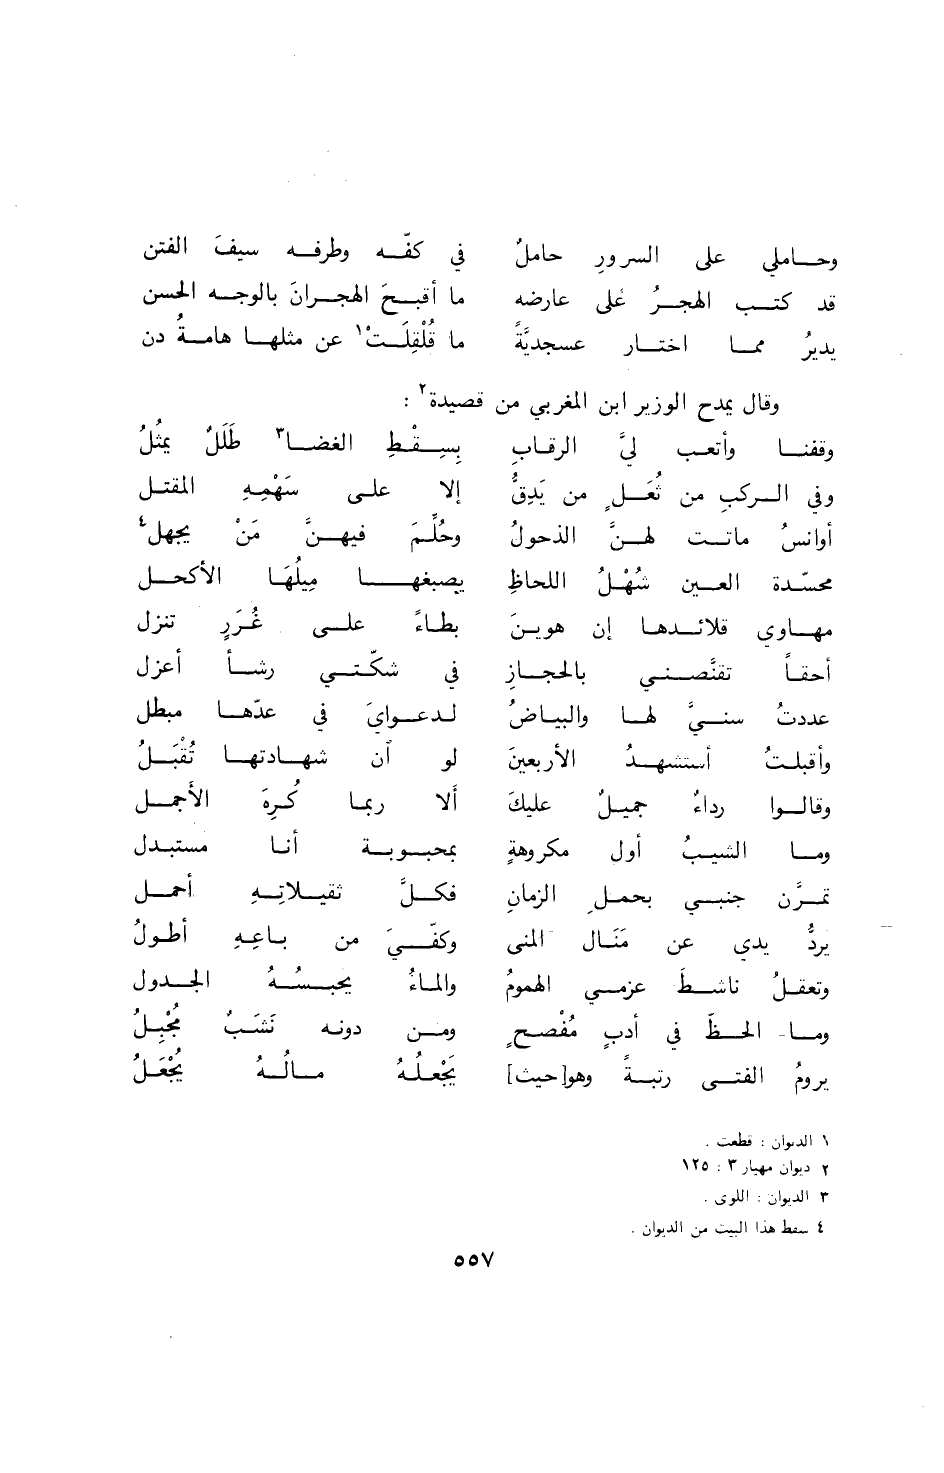 وحاملي على السرورِ حاملُ في كفّه وطرفه سيفَ الفتن
قد كتب الهجرُ على عارضه ما أقبحَ الهجرانَ بالوجه الحسن
يديرُ مما اختار عسجديَّةً ما قُلْقِلَتْ١ عن مثلها هامةُ دن
وقال يمدح الوزير ابن المغربي من قصيدة٢ :
وقفنا وأتعب ليَّ الرقابِ بسِقْطِ الغضا٣ طَلَلٌ يمثُلُ
وفي الركبِ من ثُعَلٍ من يَدِقُّ إلا على سَهْمِهِ المقتل
أوانسُ ماتت لهنَّ الذحولُ وحُلِّمَ فيهنَّ مَنْ يجهل٤
محسّدة العين شُهْلُ اللحاظِ يصبغها مِيلُهَا الأكحل
مهاوى قلائدها إن هوينَ بطاءً على غُرَرٍ تنزل
أحقاً تقنَّصني بالحجازِ في شكّتي رشأ أعزل
عددتُ سنيَّ لها والبياضُ لدعوايَ في عدّها مبطل
وأقبلتُ أستشهدُ الأربعينَ لو أن شهادتها تُقْبَلُ
وقالوا رداءُ جميلُ عليكَ ألا ربما كُرِهَ الأجمل
وما الشيبُ أول مكروهةٍ بمحبوبة أنا مستبدل
تمرَّن جنبي بحملِ الزمانِ فكلَّ ثقيلاته أحمل
يردُّ يدي عن مَنَال المنى وكفّيَ من باعِهِ أطولُ
وتعقلُ ناشطَ عزمي الهمومُ والماءُ يحبسُهُ الجدول
وما الحظَّ في أدبٍ مُفْصحٍ ومن دونه نَشَبٌ مُخْبِلُ
يرومُ الفتى رتبةً وهو[حيث] يَجْعلُهُ مالُهُ يُجْعَلُ
١ الديوان : قطعت .
٢ ديوان مهيار ٣ : ١٢٥
٣ الديوان : اللوى .
٤ سقط هذا البيت من الديوان .
٥٥٧